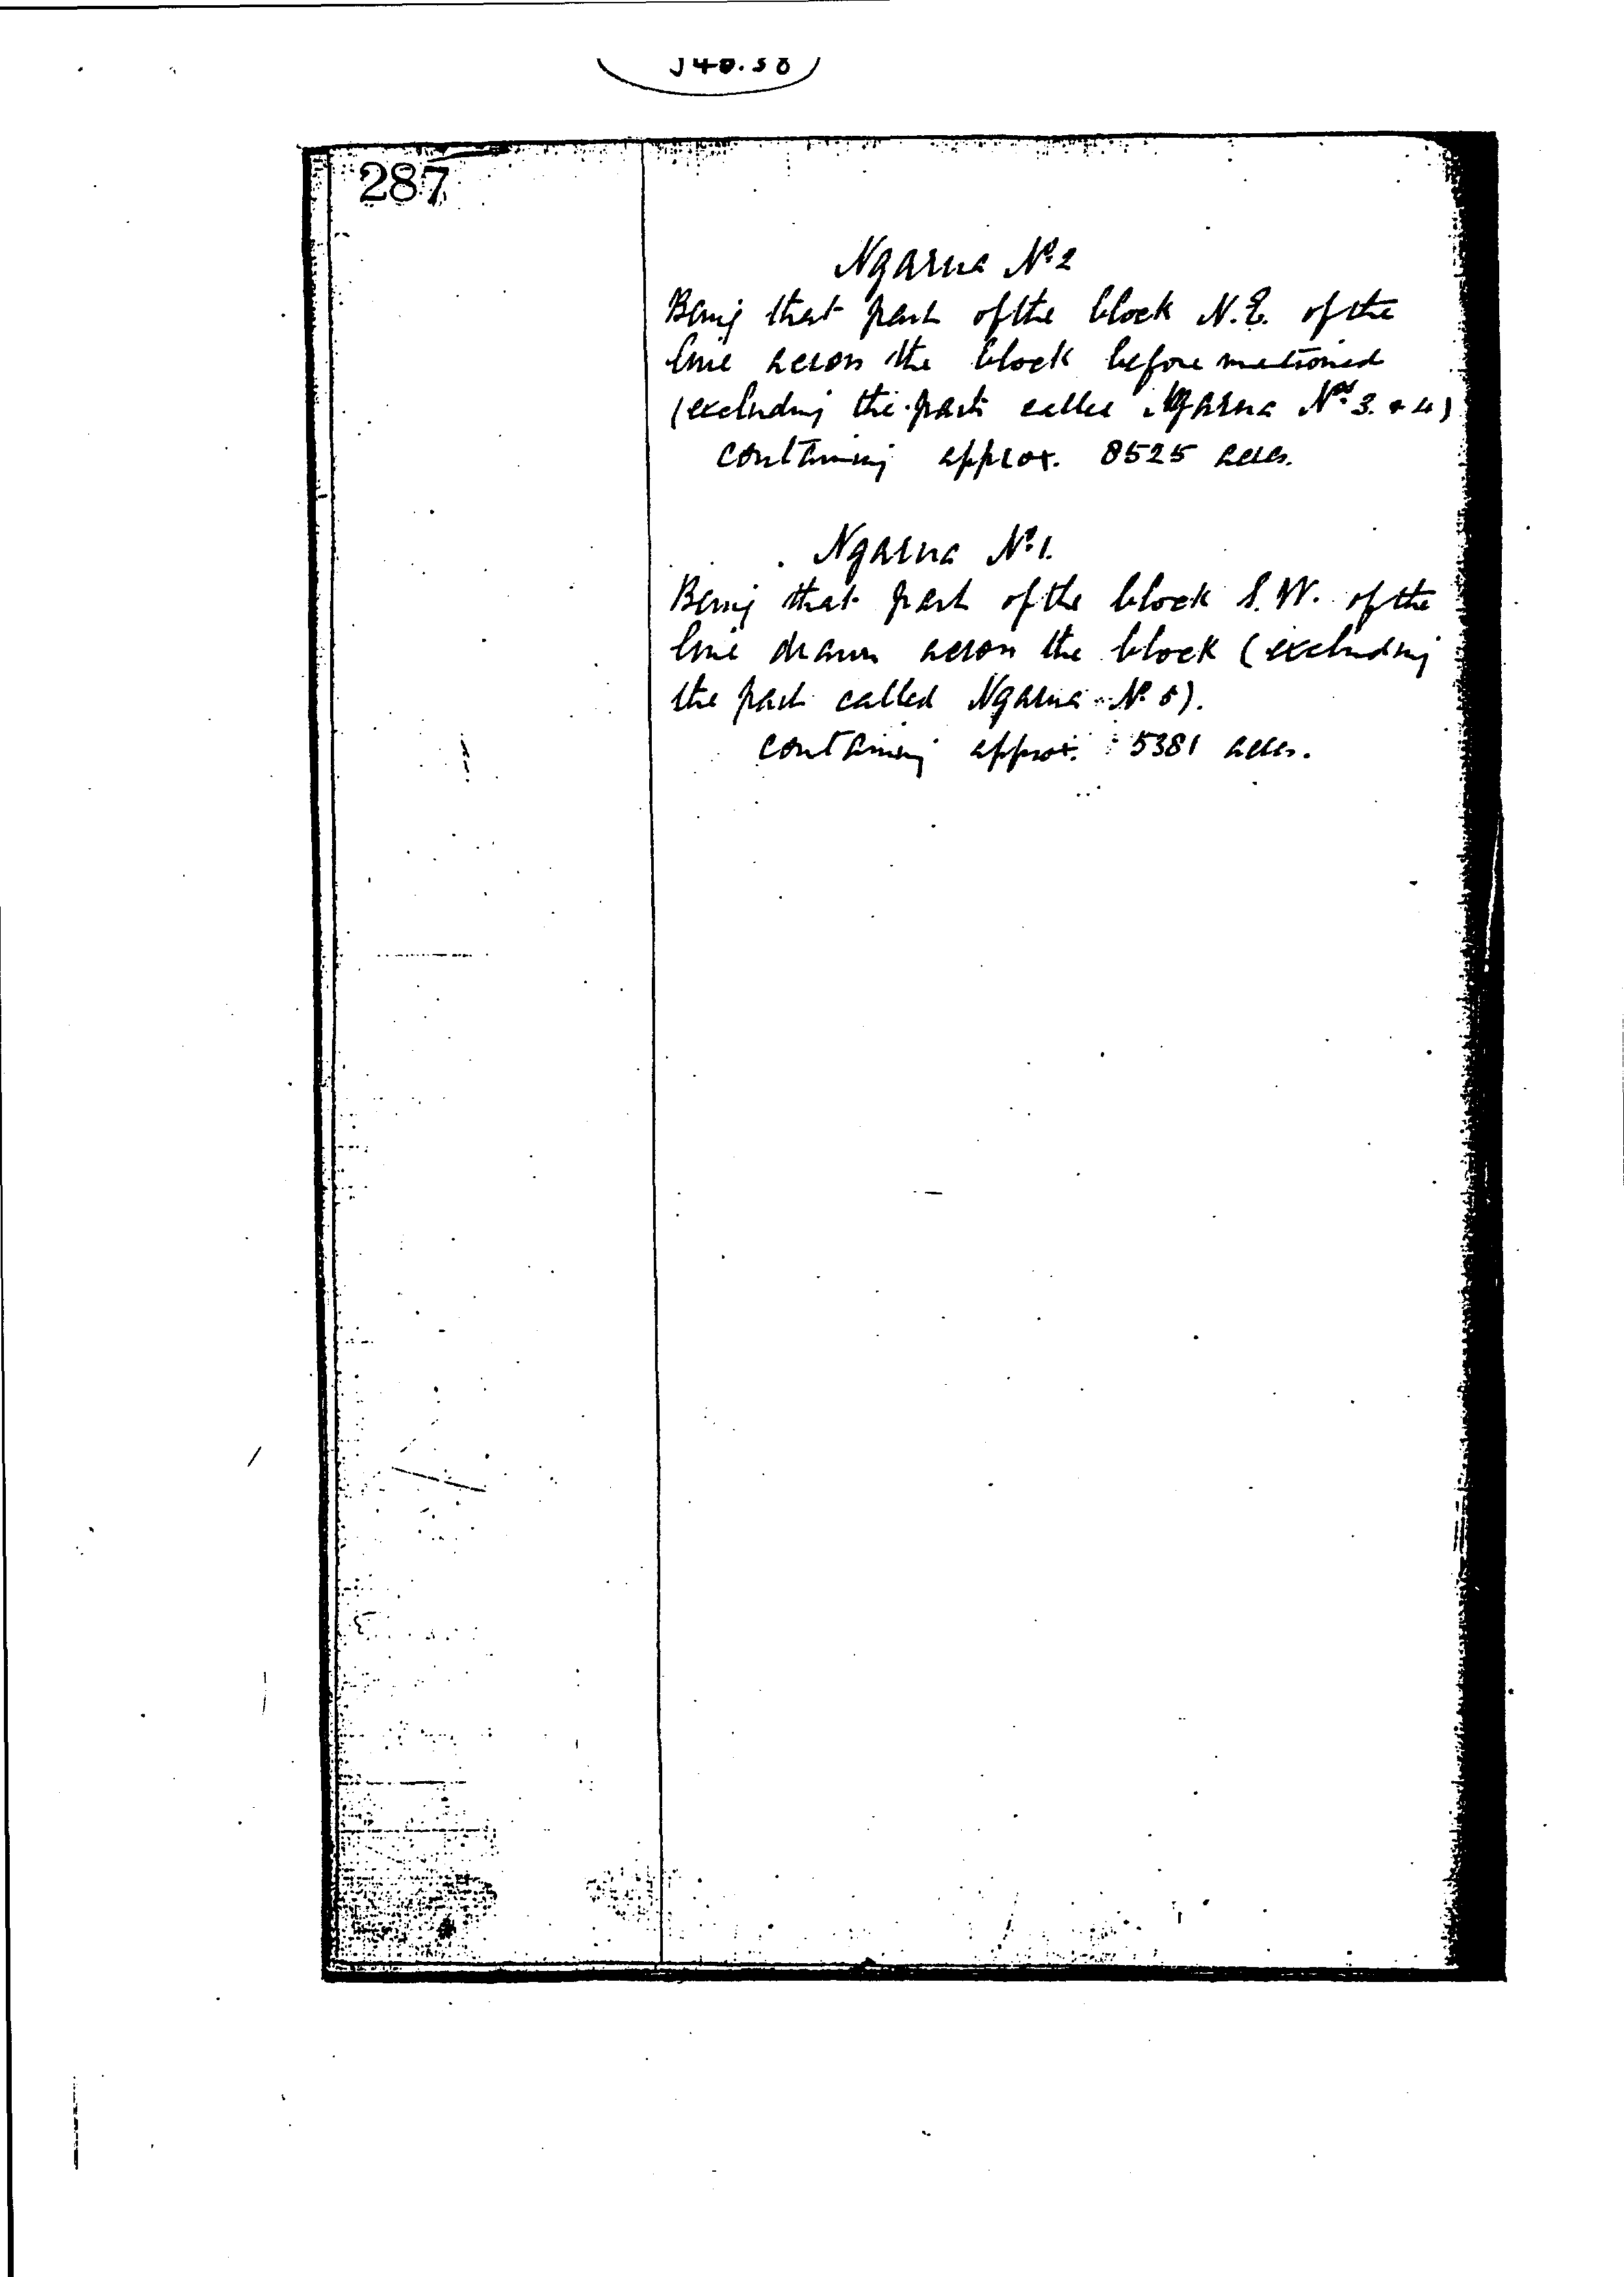 287
Ngarua No. 2
Being that part of the block N.E. of the
line across the block before mentioned
(excluding the parts called Ngarua Nos. 3. & 4)
containing approx. 8525 acres.
Ngarua No. 1.
Being that part of the block S.W. of the
line drawn across the block (excluding
the part called Ngarua No. 5).
containing approx. 5381 acres.